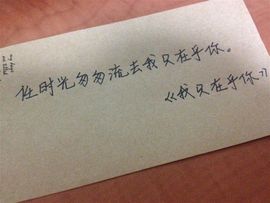 任时光匆匆流去我只在乎你。
《我只在乎你》